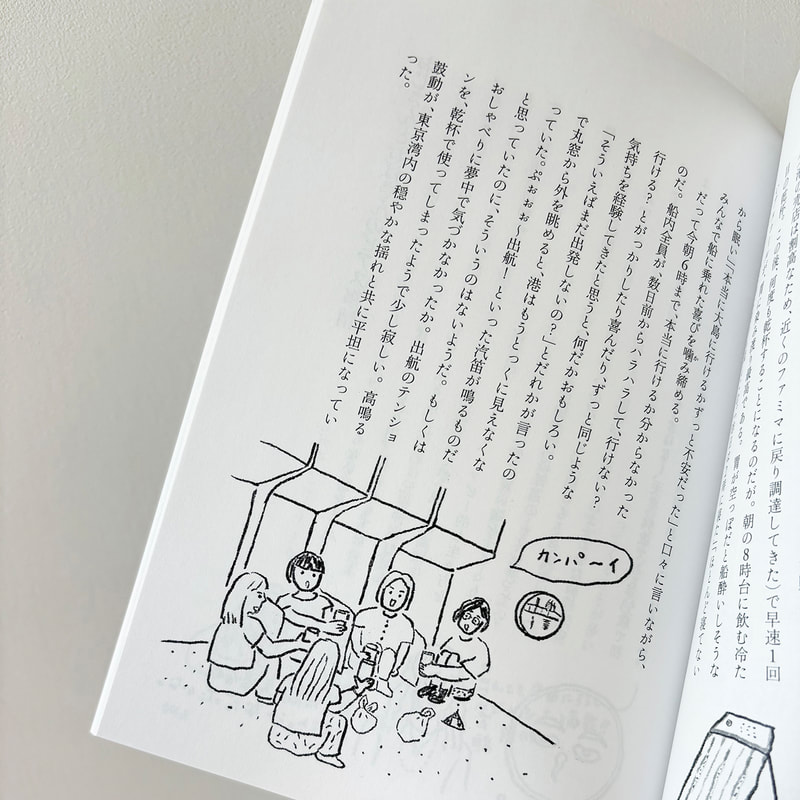 の売店は割高なため、近くのファミマに戻り調達してきた）で早速１回
この後、何度も乾杯することになるのだが。朝の８時台に飲む冷た
最高である。胃が空っぽだと船酔いしそうな
ほとんど寝てない
から眠い」「本当に大島に行けるかずっと不安だった」と口々に言いながら、
みんなで船に乗れた喜びを噛み締める。
だって今朝６時まで、本当に行けるか分からなかった
のだ。船内全員が、数日前からハラハラして、行けない？
行ける？とがっかりしたり喜んだり、ずっと同じような
気持ちを経験してきたと思うと、何だかおもしろい。
「そういえばまだ出発しないの？」とだれかが言ったの
で丸窓から外を眺めると、港はもうとっくに見えなくな
っていた。ぷぉぉぉ〜出航！といった汽笛が鳴るものだ
と思っていたのに、そういうのはないようだ。もしくは
おしゃべりに夢中で気づかなかったか。出航のテンショ
ンを、乾杯で使ってしまったようで少し寂しい。高鳴る
鼓動が、東京湾内の穏やかな揺れと共に平坦になってい
った。
カンパーイ